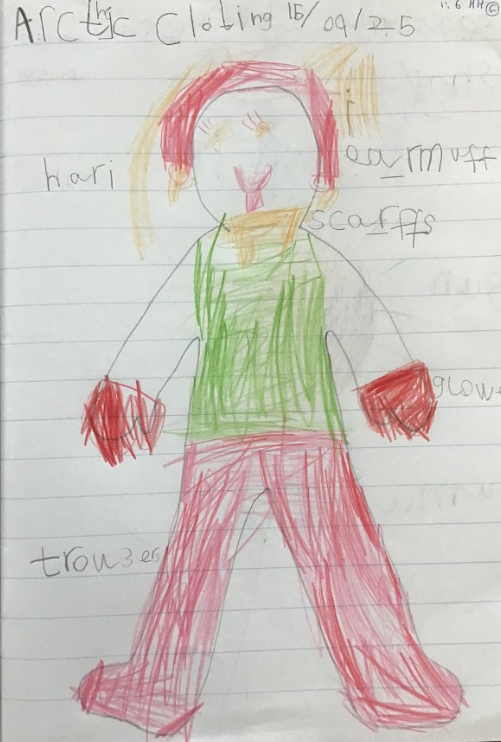 Arcthic Cloting 15/09/25
hari
earmuff
scarffs
glow
trouzers